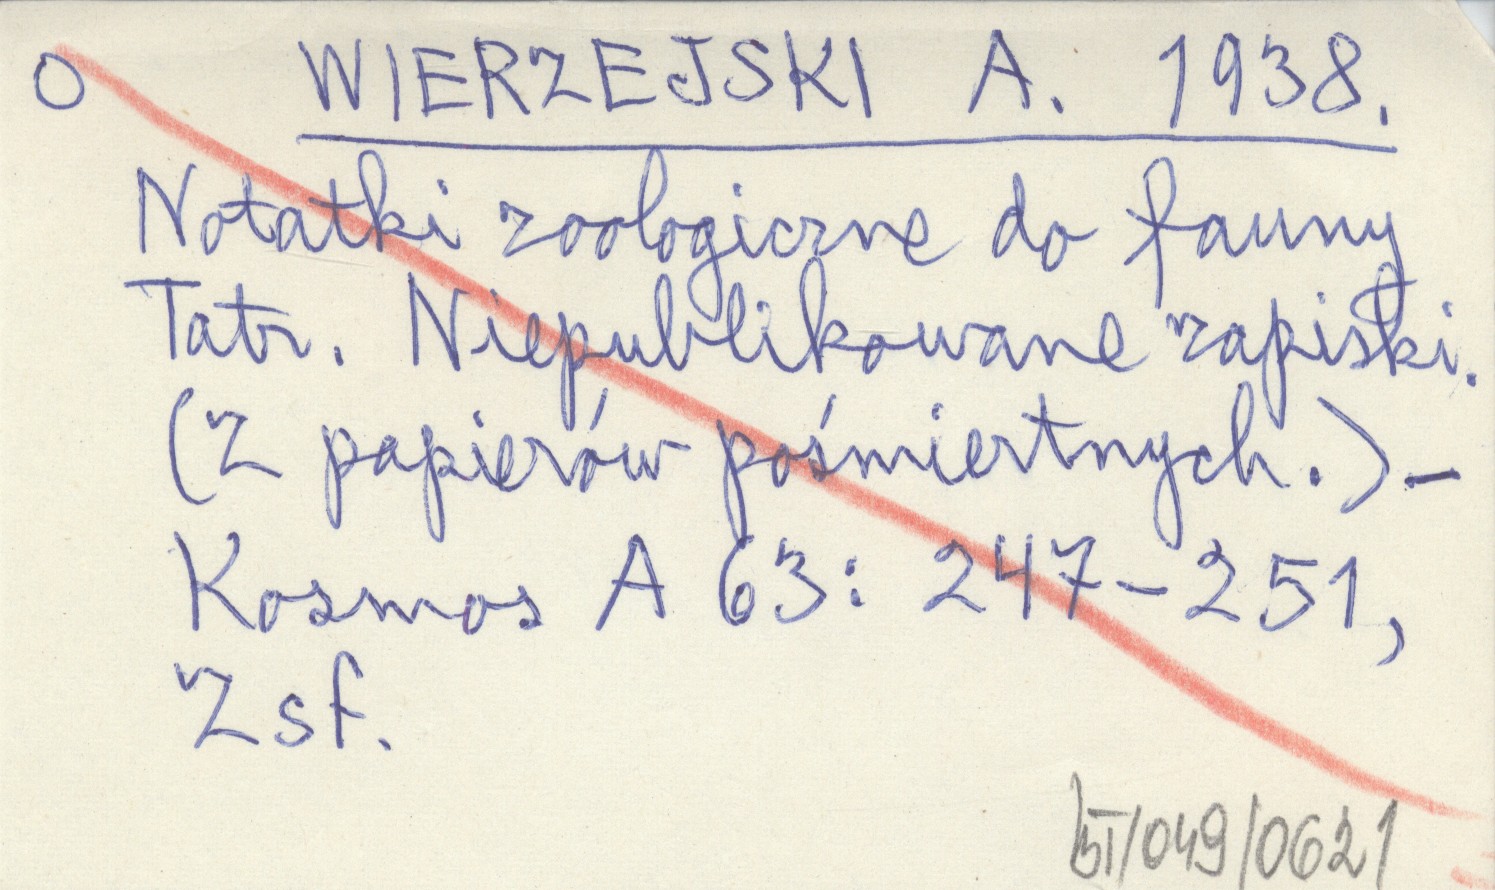 O WIERZEJSKI A. 1938.
Notatki zoologiczne do fauny
Tatr. Niepublikowane zapiski.
(Z papierów pośmiertnych.) -
Kosmos A 63: 247-251,
Zsf.
BI/049/0621